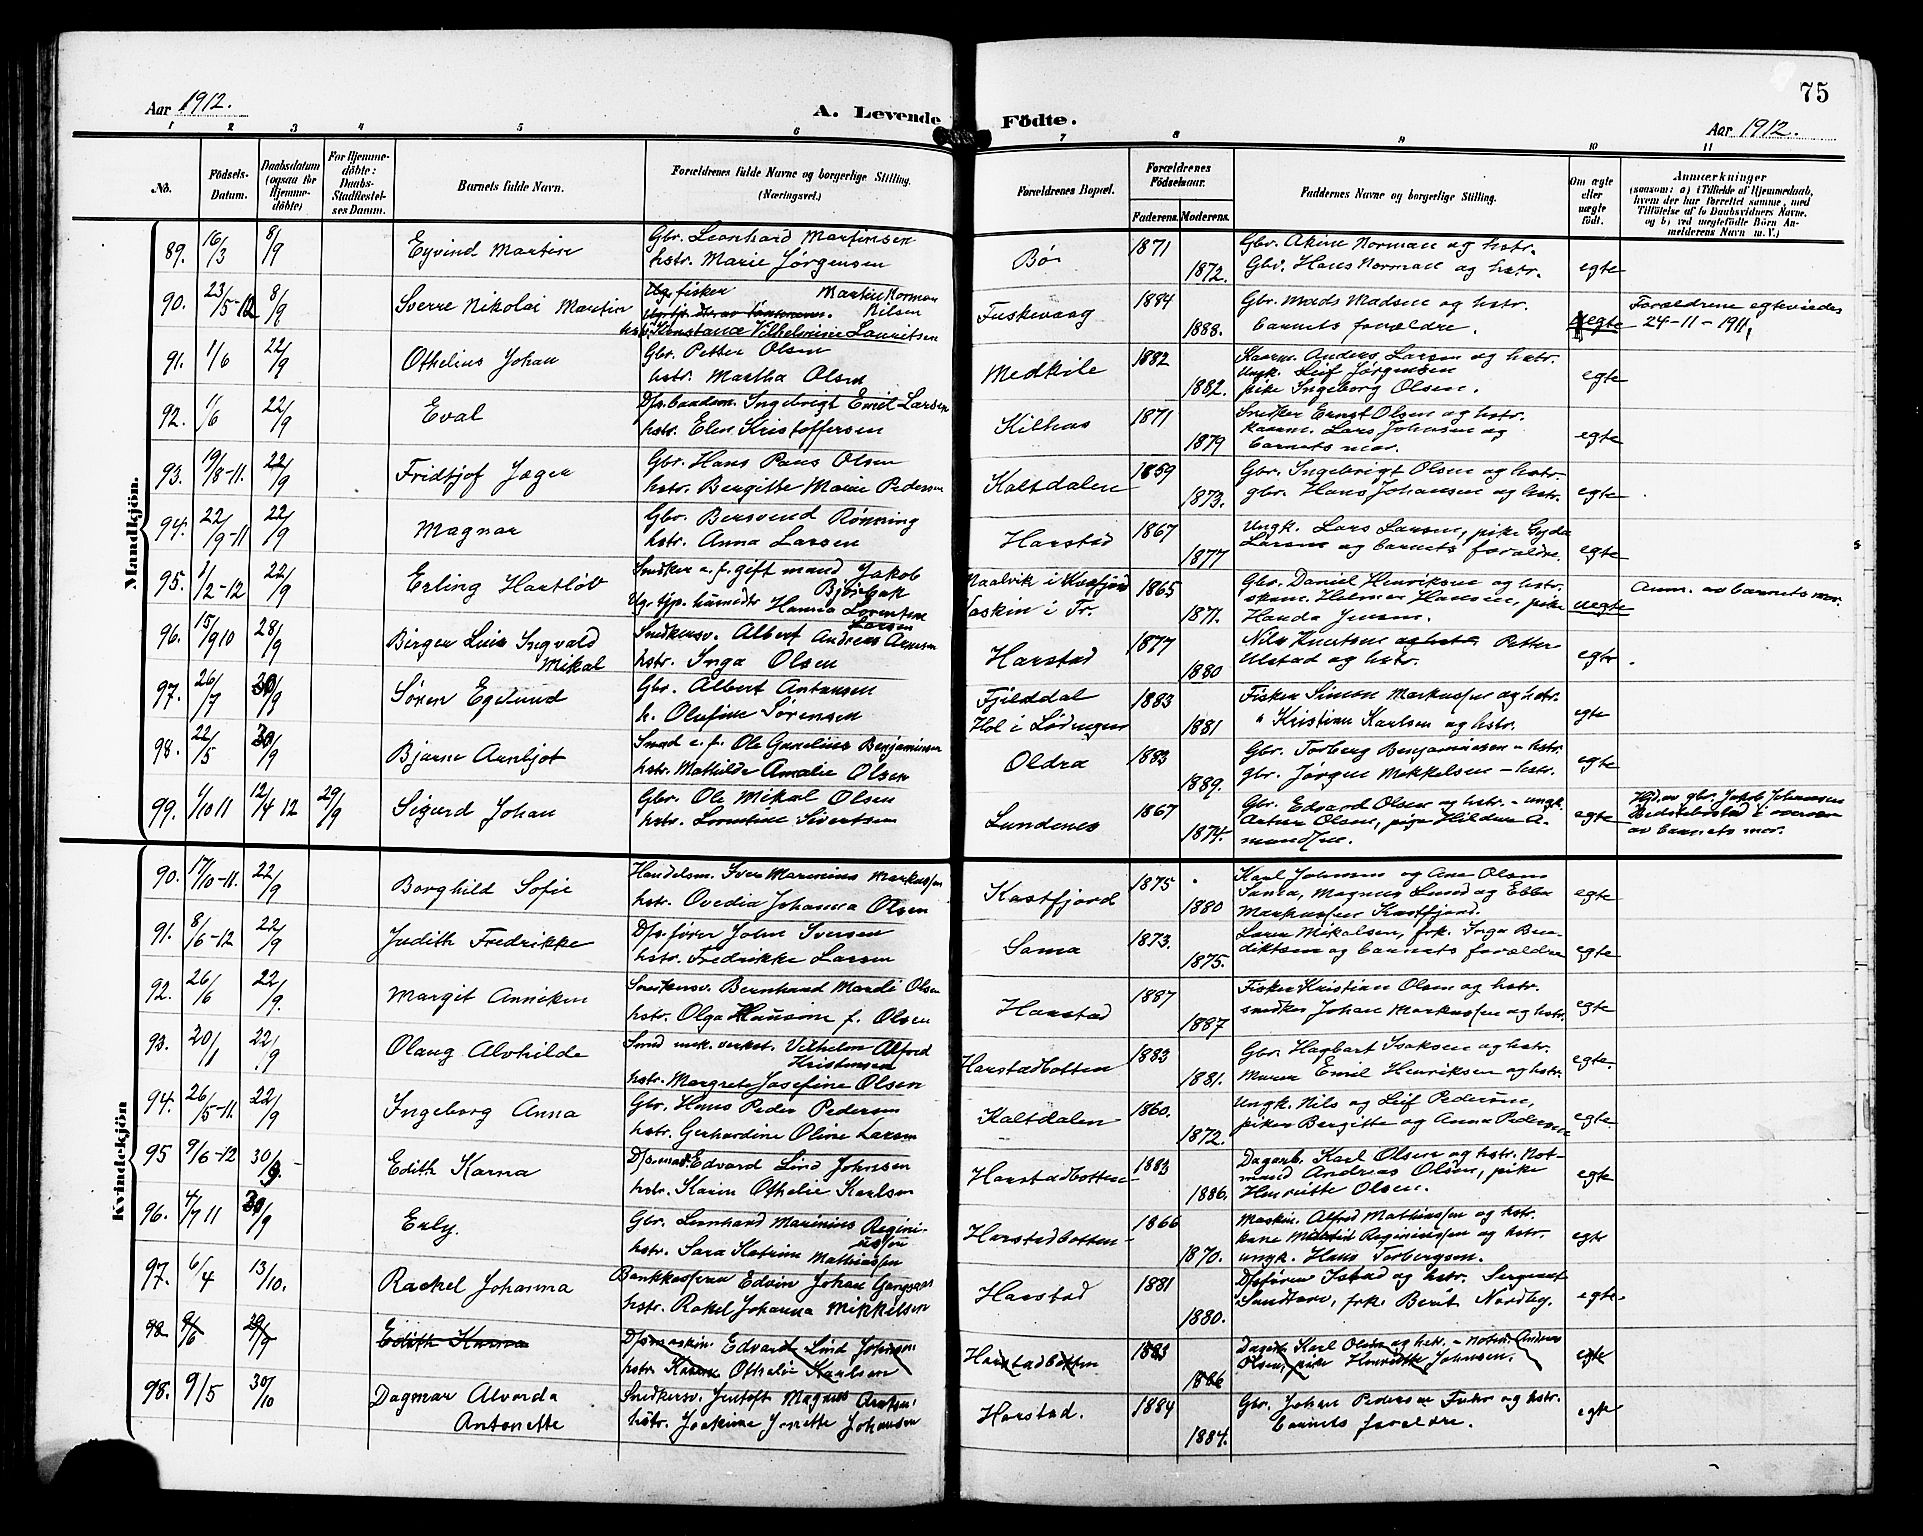 75
Aar 1912.
A. Levende Födte.
Aar 1912.
1 2 3 4 5 6 7 8 9 10 11
No. Födsels-Datum. Daabsdatum (ogsaa for Hjemme-döbte) For Hjemme-döbte: Daabs-Stadfæstel-ses Datum. Barnets fulde Navn. Forældrenes fulde Navne og borgerlige Stilling. (Næringsvei.) Forældrenes Bopæl. Forældrenes Födselsaar. Faderens. Moderens. Faddernes Navne og borgerlige Stilling. Om ægte eller uægte födt. Anmærkninger (saasom: a) i Tilfælde af Hjemmedaab, hvem der har forrettet samme, med Tilföielse af to Daabsvidners Navne, og b) ved uægtefödte Börn Anmelderens Navn m. V.)
Mandkjön.
89. 16/3 8/9 Eyvind Martin Gbr. Leonhard Martinsen Bø 1871 Gbr. Akim Norman og hstr.
hstr. Marie Jørgensen 1872. Gbr. Hans Norman og hstr. egte
90. 23/5-12 8/9 Sverre Nikolai Martin fisker Martin Norman Nilsen Fuskevaag 1884 Gbr. Mads Madsen og hstr. Forældrene egteviedes
hstr. Konstance Vilhelmine Lauritsen 1888. barnets forældre. egte 24-11-1911
91. 1/6 22/9 Othelius Johan Gbr. Petter Olsen Medkile 1882 Kaarm. Anders Larsen og hstr.
hstr. Martha Olsen 1882. Ungk. Leif Jørgensen pike Ingeborg Olsen. egte
92. 11/6 22/9 Eval D/s. baadsm. Ingebrigt Emil Larsen Kilhus 1871 Snedker Ernst Olsen og hstr.
hstr. Elen Kristoffersen 1879 Kaarm. Lars Johnsen og barnets mor. egte
93. 19/8-11. 22/9 Fridtjof Jæger Gbr. Hans Paus Olsen Kaltdalen 1859 Gbr. Ingebrigt Olsen og hstr.
hstr. Bergitte Marie Pedersen 1873. gbr. Hans Johansen og hstr. egte
94. 22/9-11 22/9 Magnar Gbr. Bersvend Rønning Harstad 1867 Ungk. Lars Larsen, pike Gyda
hstr. Anna Larsen 1877 Larsen og barnets forældre. egte
95. 1/2-12 22/9 Erling Hartløv Snedker e. f. gift mand Jakob Bjørbæk Maalvik i Kvæfjord 1865 Gbr. Daniel Henriksen og hstr. Anm. av barnets mor.
Hanna Lorentine Larsen Vaskin i Tr. 1871. skom. Helmer Hansen, pike Handa Jensen. uegte
96. 15/9 10 28/9 Birger Luis Ingvald Mikal Snedkersv. Albert Andreas Arnesen Harstad 1877 Nils Knertsen Petter
hstr. Inga Olsen 1880 Ulstad og hstr. egte
97. 26/7 30/9 Søren Egelund Gbr. Albert Antonsen Fjelddal 1883 Fisker Simon Markussen og hstr.
h. Olufine Sørensen Hol i Lødingen 1881 " Kristian Karlsen og hstr. egte
98. 22/5 30/9 Bjarne Arnljot Smed e. f. Ole Gunelius Benjaminsen Oldra 1883 Gbr. Torberg Benjaminsen - hstr.
hstr. Mathilde Amalie Olsen 1889. gbr. Jørgen Mikkelsen - hstr. egte
99. 1/10 11 12/4 12 29/9 Sigurd Johan Gbr. Ole Mikal Olsen Lundenes 1867 Gbr. Edvard Olsen og hstr. - ungk. Hjd. av gbr. Jakob Johansen
hstr. Lorentine Sivertsen 1874. Artur Olsen, pige Hildur Amundsen. egte i overvær av barnets mor.
Kvindekjön
90. 17/10-11. 22/9 Borghild Sofie Handelsm. Iver Marenius Markussen Kastfjord 1875 Karl Johnsen og Ane Olsen
hstr. Ovedia Johanna Olsen 1880 Sama, Magnus Lund og Ebba Markussen Kastfjord. egte
91. 8/6-12 22/9 Judith Fredrikke D/s. fører John Iversen Sama 1873. Lorer Mikalsen, frk. Inga Bene-
hstr. Fredrikke Larsen 1875. diktsen og barnets forældre egte
92. 26/6 22/9. Margit Anniken Snedkersv. Bernhard Mardi Olsen Harstad 1887 Fisker Kristian Olsen og hstr.
hstr. Olga Hansine f. Olsen 1887 snedker Johan Markussen og hstr. egte
93. 20/1 22/9 Olaug Alvhilde Smed mek. verkst. Vilhelm Alfred Kristensen Harstadbotten 1883 Gbr. Hagbart Isaksen og hstr.
hstr. Margrete Josefine Olsen 1881. Murer Emil Henriksen og hstr. egte.
94. 26/5-11. 22/9 Ingeborg Anna Gbr. Hans Peder Pedersen Kaltdalen 1860. Ungk. Nils og Leif Pedersen,
hstr. Gerhardine Oline Larsen 1872. piker Bergitte og Anna Pedersen egte
95 9/6-12 30/9. Edith Karna D/s. mask. Edvard Lind Johnsen Harstadbotten 1883 Dagarb. Karl Olsen og hstr. Not-
hstr. Karen Othelie Karlsen 1886. mand Andreas Olsen, pike Henriette Olsen. egte
96. 4/7 11 30/9 Erly. Gbr. Leonhard Marinius Reginiussen Harstadbotten 1866 Maskin. Alfred Mathiassen og hstr.
hstr. Sara Katrine Mathiassen 1870. Reginiussen og hstr. ungk. Hans Torbergsen. egte
97. 6/4 13/10. Rachel Johanna Bankkasserer Edvin Johan Harstad 1881 D/sføren Istad og hstr. Sergeant
hstr. Rakel Johanna Mikkelsen 1880. Sundtom, frk. Berit Nordby. egte
98 9/6 29/9 Edith Karna D/smaskin. Edvard Lind Johnsen Harstadbotten 1883 Dagarb. Karl Olsen og hstr. - Notm. Andreas
hstr. Karen Othelie Karlsen 1886 Olsen, pike Henriette Johnsen. egte
98. 9/5 30/10 Dagmar Alvorda Antonette Snedkersv. Jentoft Magnus Arntsen Harstad. 1884 Gbr. Johan Pedersen og hstr.
hstr. Joakime Jonette Johansen 1884. barnets forældre. egte